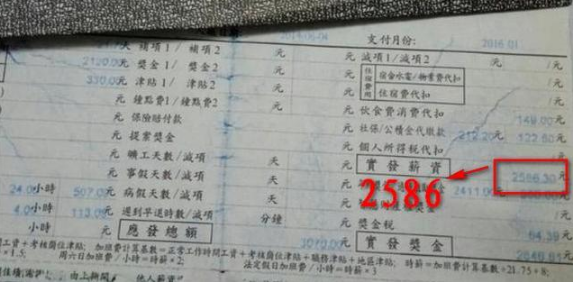 2014-06-04 支付月份: 2016-01
天 補項1/ 補項2 元 元 減項1/減項2 元 /元
2120.00元 獎金1/ 獎金2 元 元 住宿費用 宿舍水電/物業費代扣 /元
330.00元 津貼1/ 津貼2 元 元 住宿費代扣 /元
元 種點費1/種點費2 元 元 伙食費消費代扣 149.00元
元 保險賠付款 元 社保/公積金代繳款 212.20元 122.60元
元 提案獎金 元 個人所得稅代扣 元
元 曠工天數/減項 天 元 實發薪資 2586.30元
元 事假天數/減項 天 元 2586 2411.00
24.00小時 507.00元 病假天數/減項 天 元
4.00小時 113.00元 遲到早退時數/減項 分鐘 元 獎金稅 64.39元
小時 元 應發總額 3070.00元 實發獎金 元
工資+考核崗位津貼; 加班費計算基數=正常工作時間工資+考核崗位津貼+職務津貼+地區津貼; 時薪=加班費計算基數÷21.75÷8;
=1.5; 周六日加班費/小時=時薪×2; 法定假日加班費/小時=時薪×3